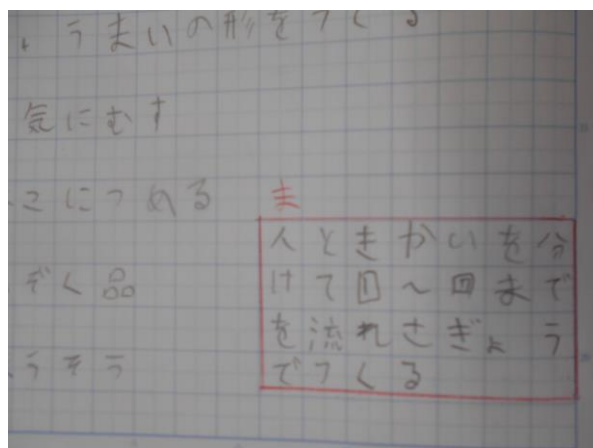 うまいの形をつくる
気にむす
こにつめる
ぞく品
うそう
ま
人ときかいを分
けて1〜 まで
を流れさぎょう
でつくる